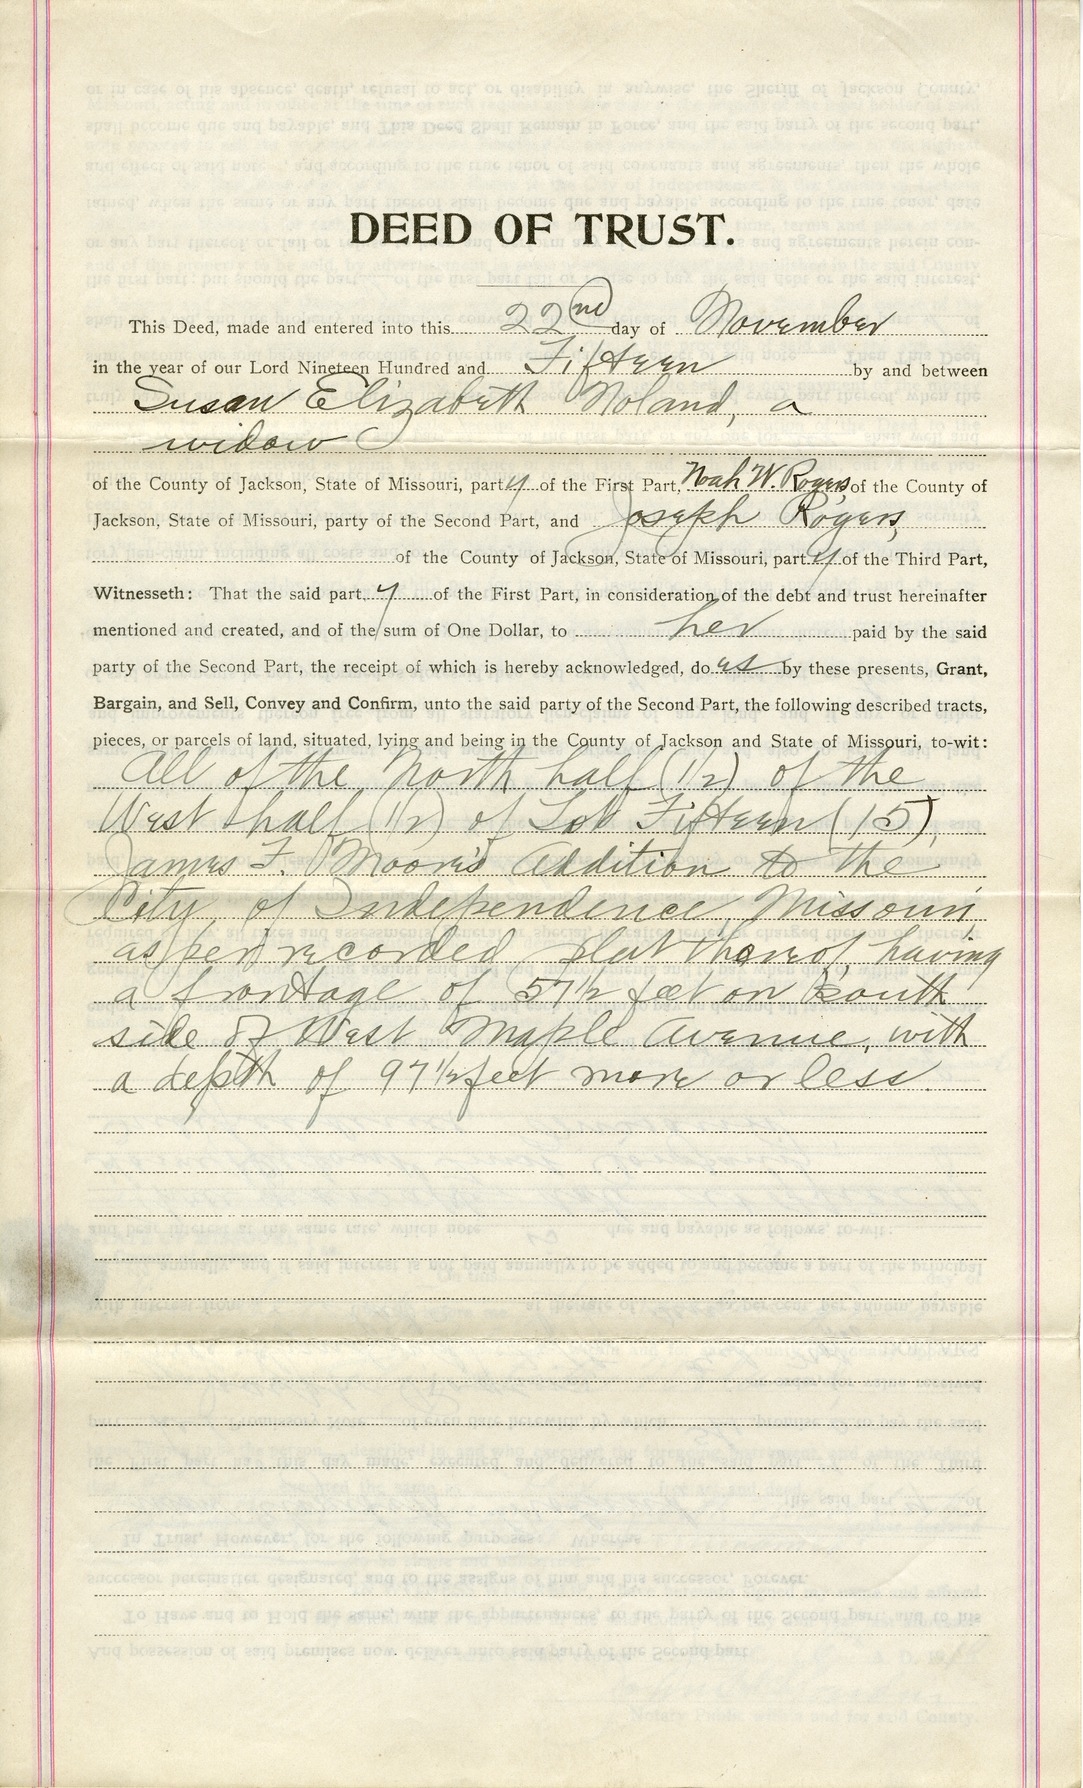 DEED OF TRUST.
This Deed, made and entered into this 22nd day of November
in the year of our Lord Nineteen Hundred and Fifteen by and between
Susan Elizabeth Noland, a
widow
of the County of Jackson, State of Missouri, party of the First Part, Noah W. Rogers, of the County of
Jackson, State of Missouri, party of the Second Part, and Joseph Rogers,
of the County of Jackson, State of Missouri, party of the Third Part,
Witnesseth: That the said party of the First Part, in consideration of the debt and trust hereinafter
mentioned and created, and of the sum of One Dollar, to her paid by the said
party of the Second Part, the receipt of which is hereby acknowledged, do es by these presents, Grant,
Bargain, and Sell, Convey and Confirm, unto the said party of the Second Part, the following described tracts,
pieces, or parcels of land, situated, lying and being in the County of Jackson and State of Missouri, to-wit:
All of the North half (1/2) of the
West half (1/2) of Lot Fifteen (15),
James F. Moore's Addition to the
City of Independence, Missouri
as per recorded plat thereof, having
a frontage of 57 1/2 feet on South
side of West Maple Avenue, with
a depth of 97 1/2 feet more or less.